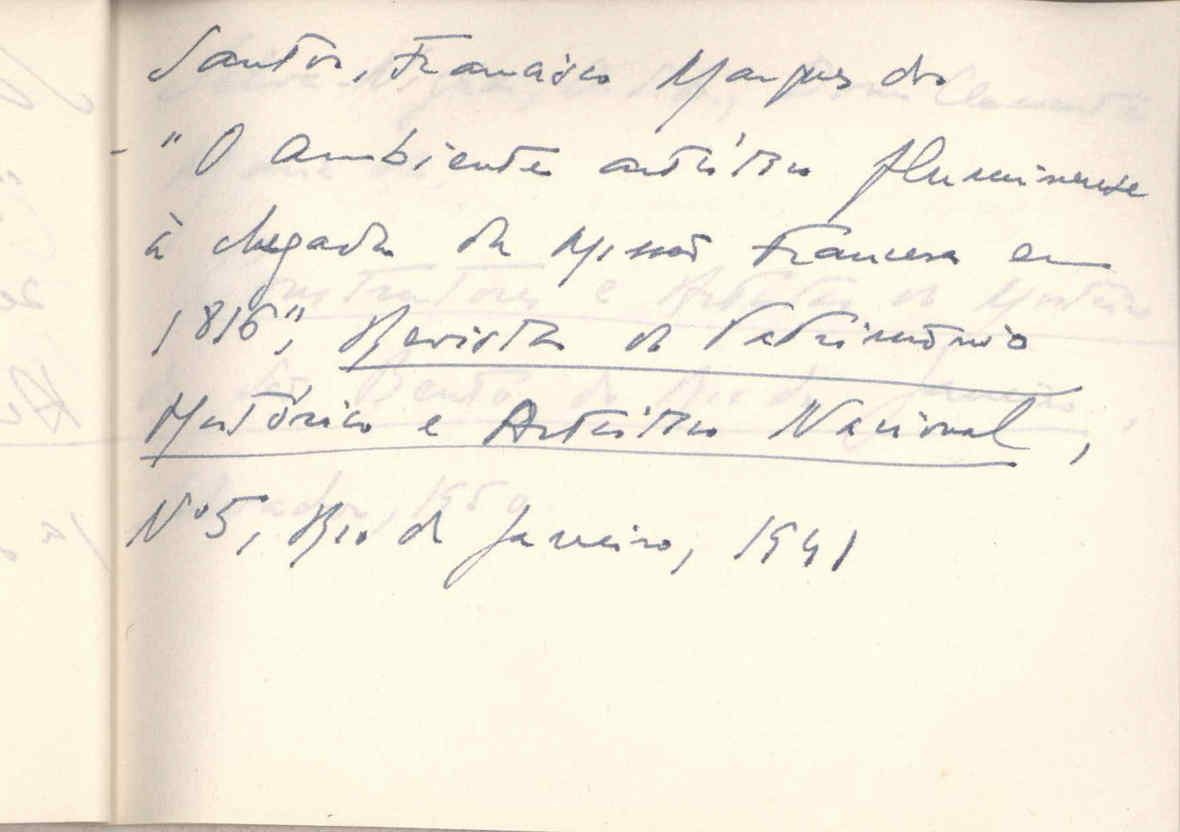 Santos, Francisco Marques dos
- "O ambiente artístico fluminense
à chegada da Missão Francesa em
1816", Revista do Patrimônio
Histórico e Artístico Nacional,
Nº 5, Rio de Janeiro, 1941